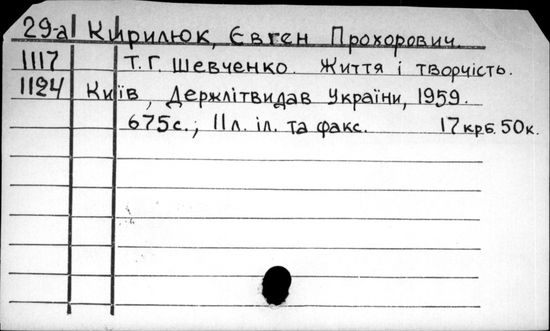 29-а Кирилюк, Євген Прохорович.
1117 Т. Г. Шевченко. Життя і творчість.
1124 Київ, Держлітвидав України, 1959.
675с.; 11 л. іл. та факс. 17 крб. 50к.